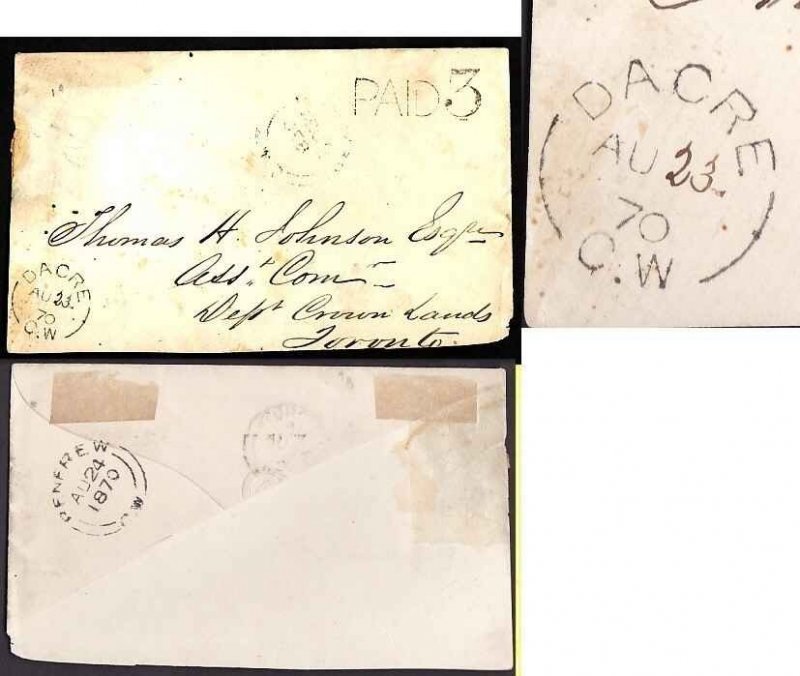 PAID 3
Thomas H. Johnson Esqre
Asst. Comr
Dept Crown Lands
Toronto.
DACRE
AU 23.
70
C.W
DACRE
AU 23.
70
C.W
RENFREW
AU 24
1870
C.W